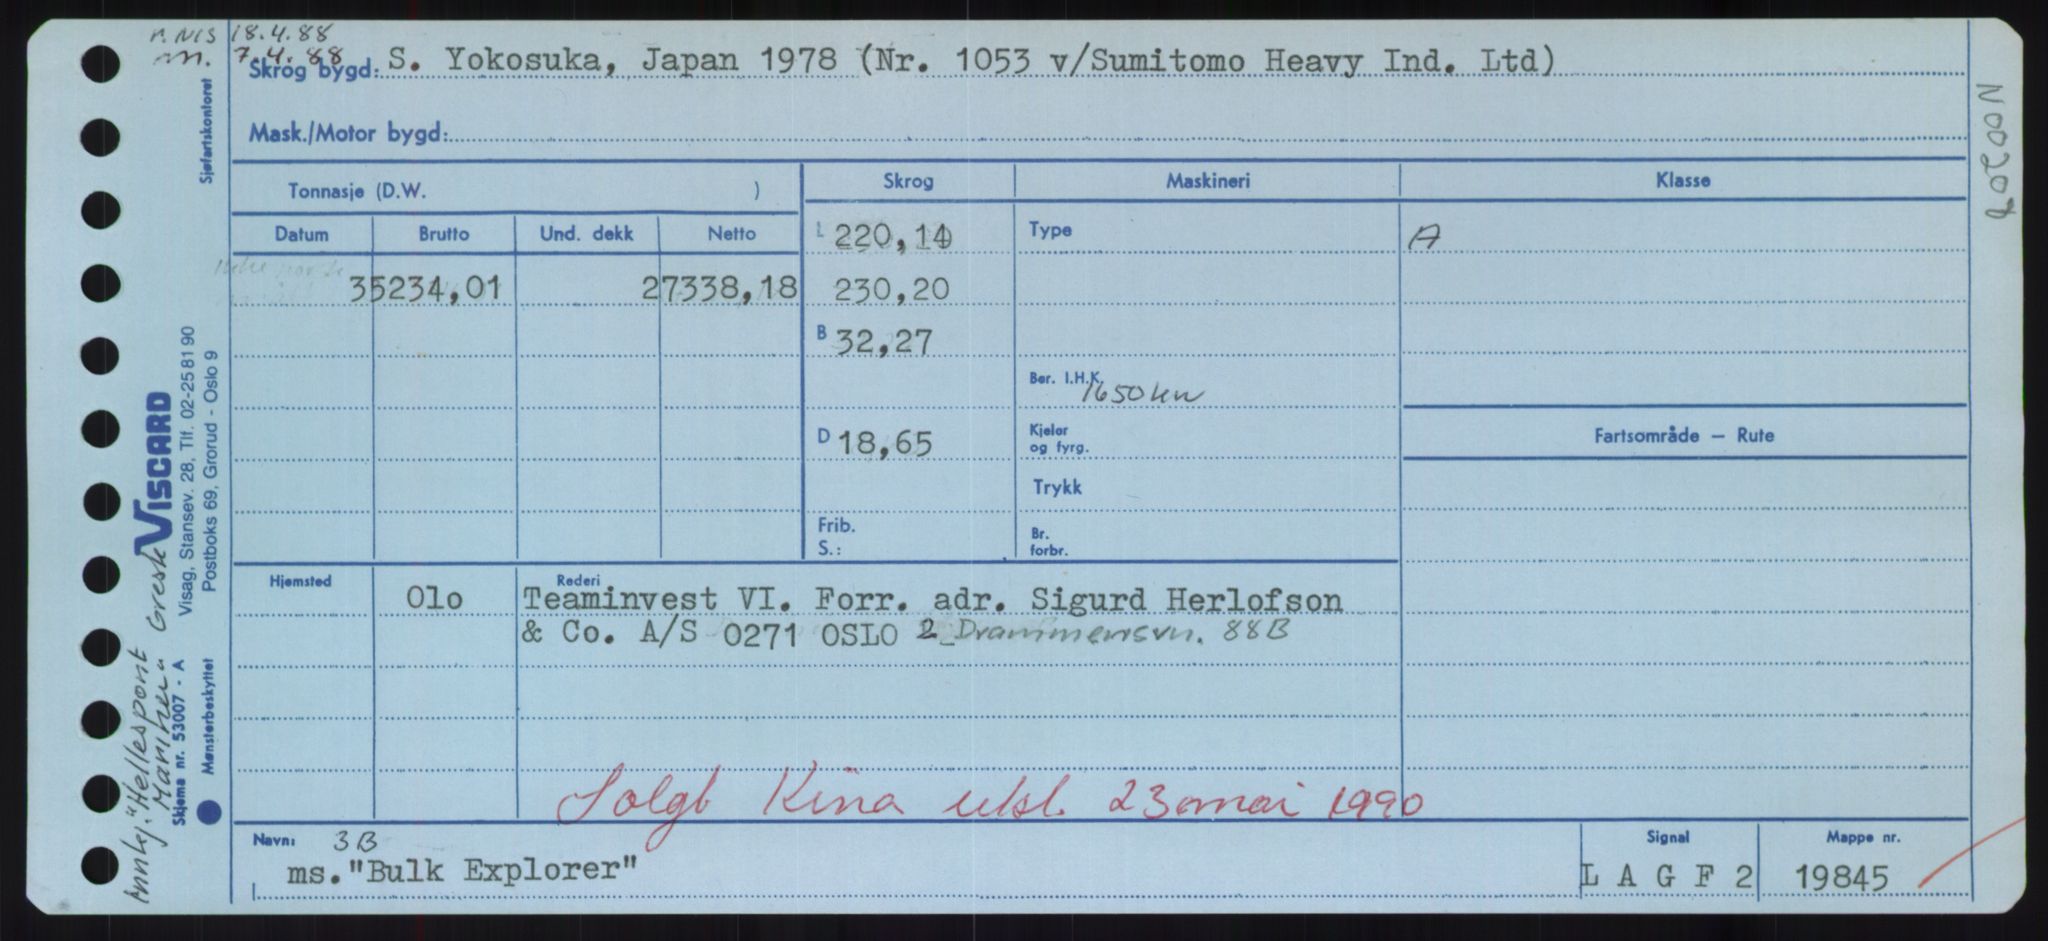 n. NIS 18.4.88
m. 7.4.88
Skrog bygd: S. Yokosuka, Japan 1978 (Nr. 1053 v/Sumitomo Heavy Ind. Ltd)
Mask./Motor bygd:
Tonnasje (D.W. )
Skrog Maskineri Klasse
Datum Brutto Und. dekk Netto
L 220,14 Type A
35234,01 27338,18 230,20
B 32,27
Ber. I.H.K. 1650 kw
D 18,65 Kjeler
og fyrg.
Fartsområde – Rute
Trykk
Frib.
S.:
Br.
forbr.
Hjemsted Rederi
Olo Teaminvest VI. Forr. adr. Sigurd Herlofson
& Co. A/S 0271 OSLO 2 Drammensvn. 88B
Solgt Kina 23 mai 1990
Navn: 3B
ms. "Bulk Explorer"
Signal
L A G F 2
Mappe nr.
19845
N00202
Sjøfartskontoret
VISCARD
Visag, Stansev. 28, Tlf. 02-25 81 90
Postboks 69, Grorud - Oslo 9
Skjema nr. 53007 - A
Mønsterbeskyttet
"Hellespont
Gresk